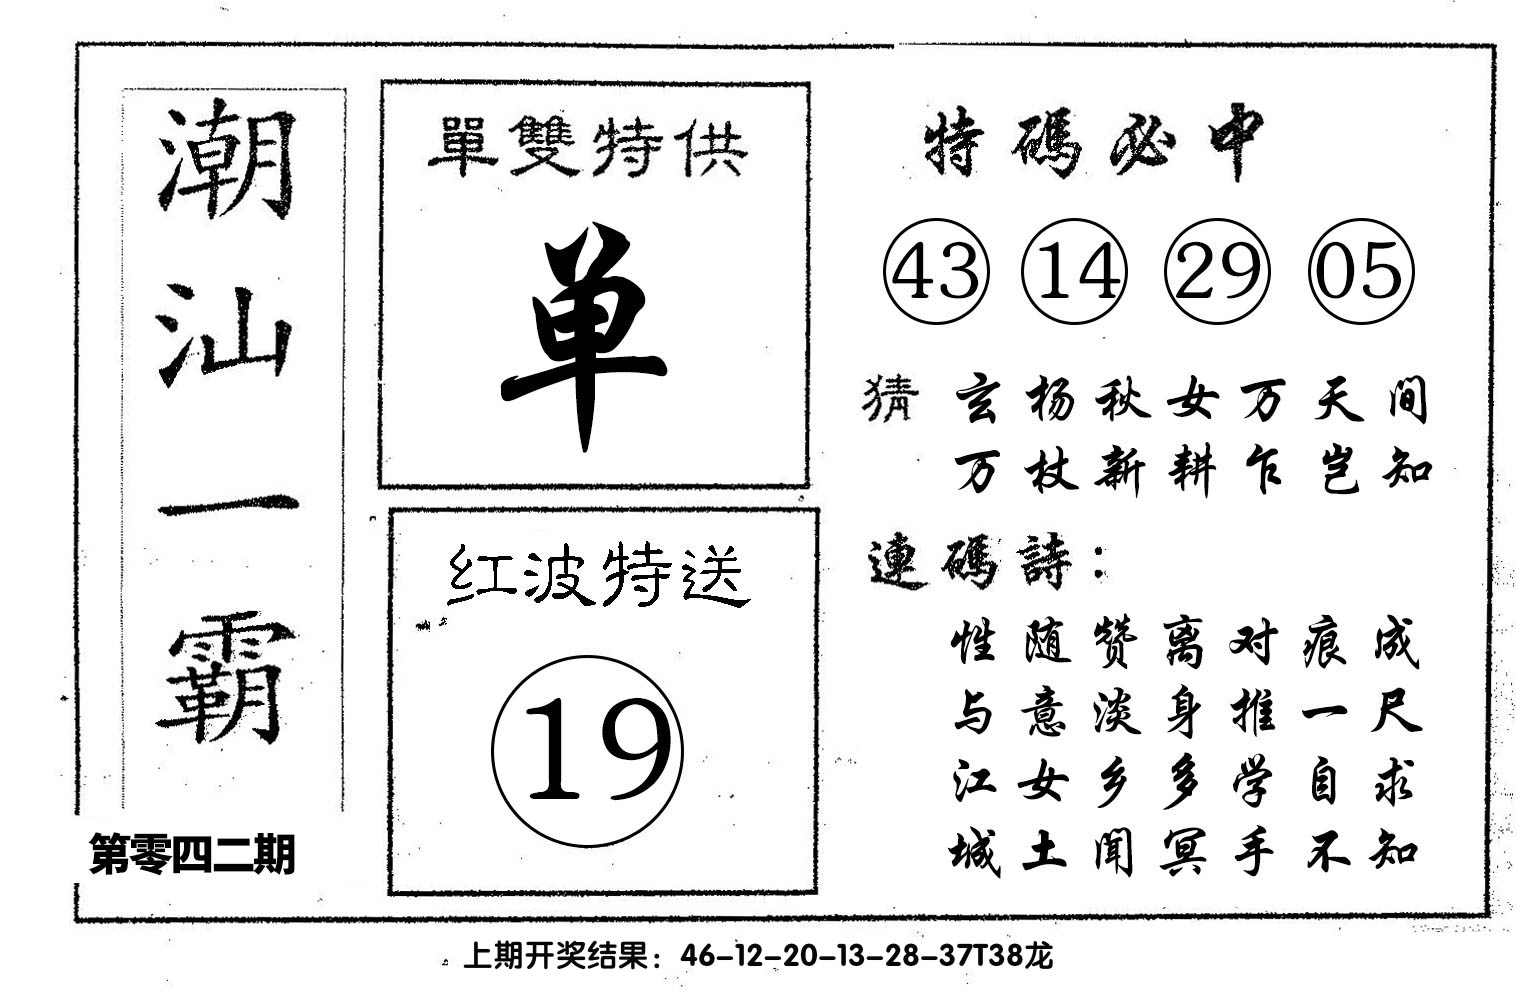 潮汕一霸
第零四二期
單雙特供
单
红波特送
19
特碼必中
43 14 29 05
猜 玄杨秋女万天间
万杖新耕乍岂知
連碼詩：
性随赞离对痕成
与意淡身推一尺
江女乡多学自求
城土闻冥手不知
上期开奖结果：46-12-20-13-28-37T38龙